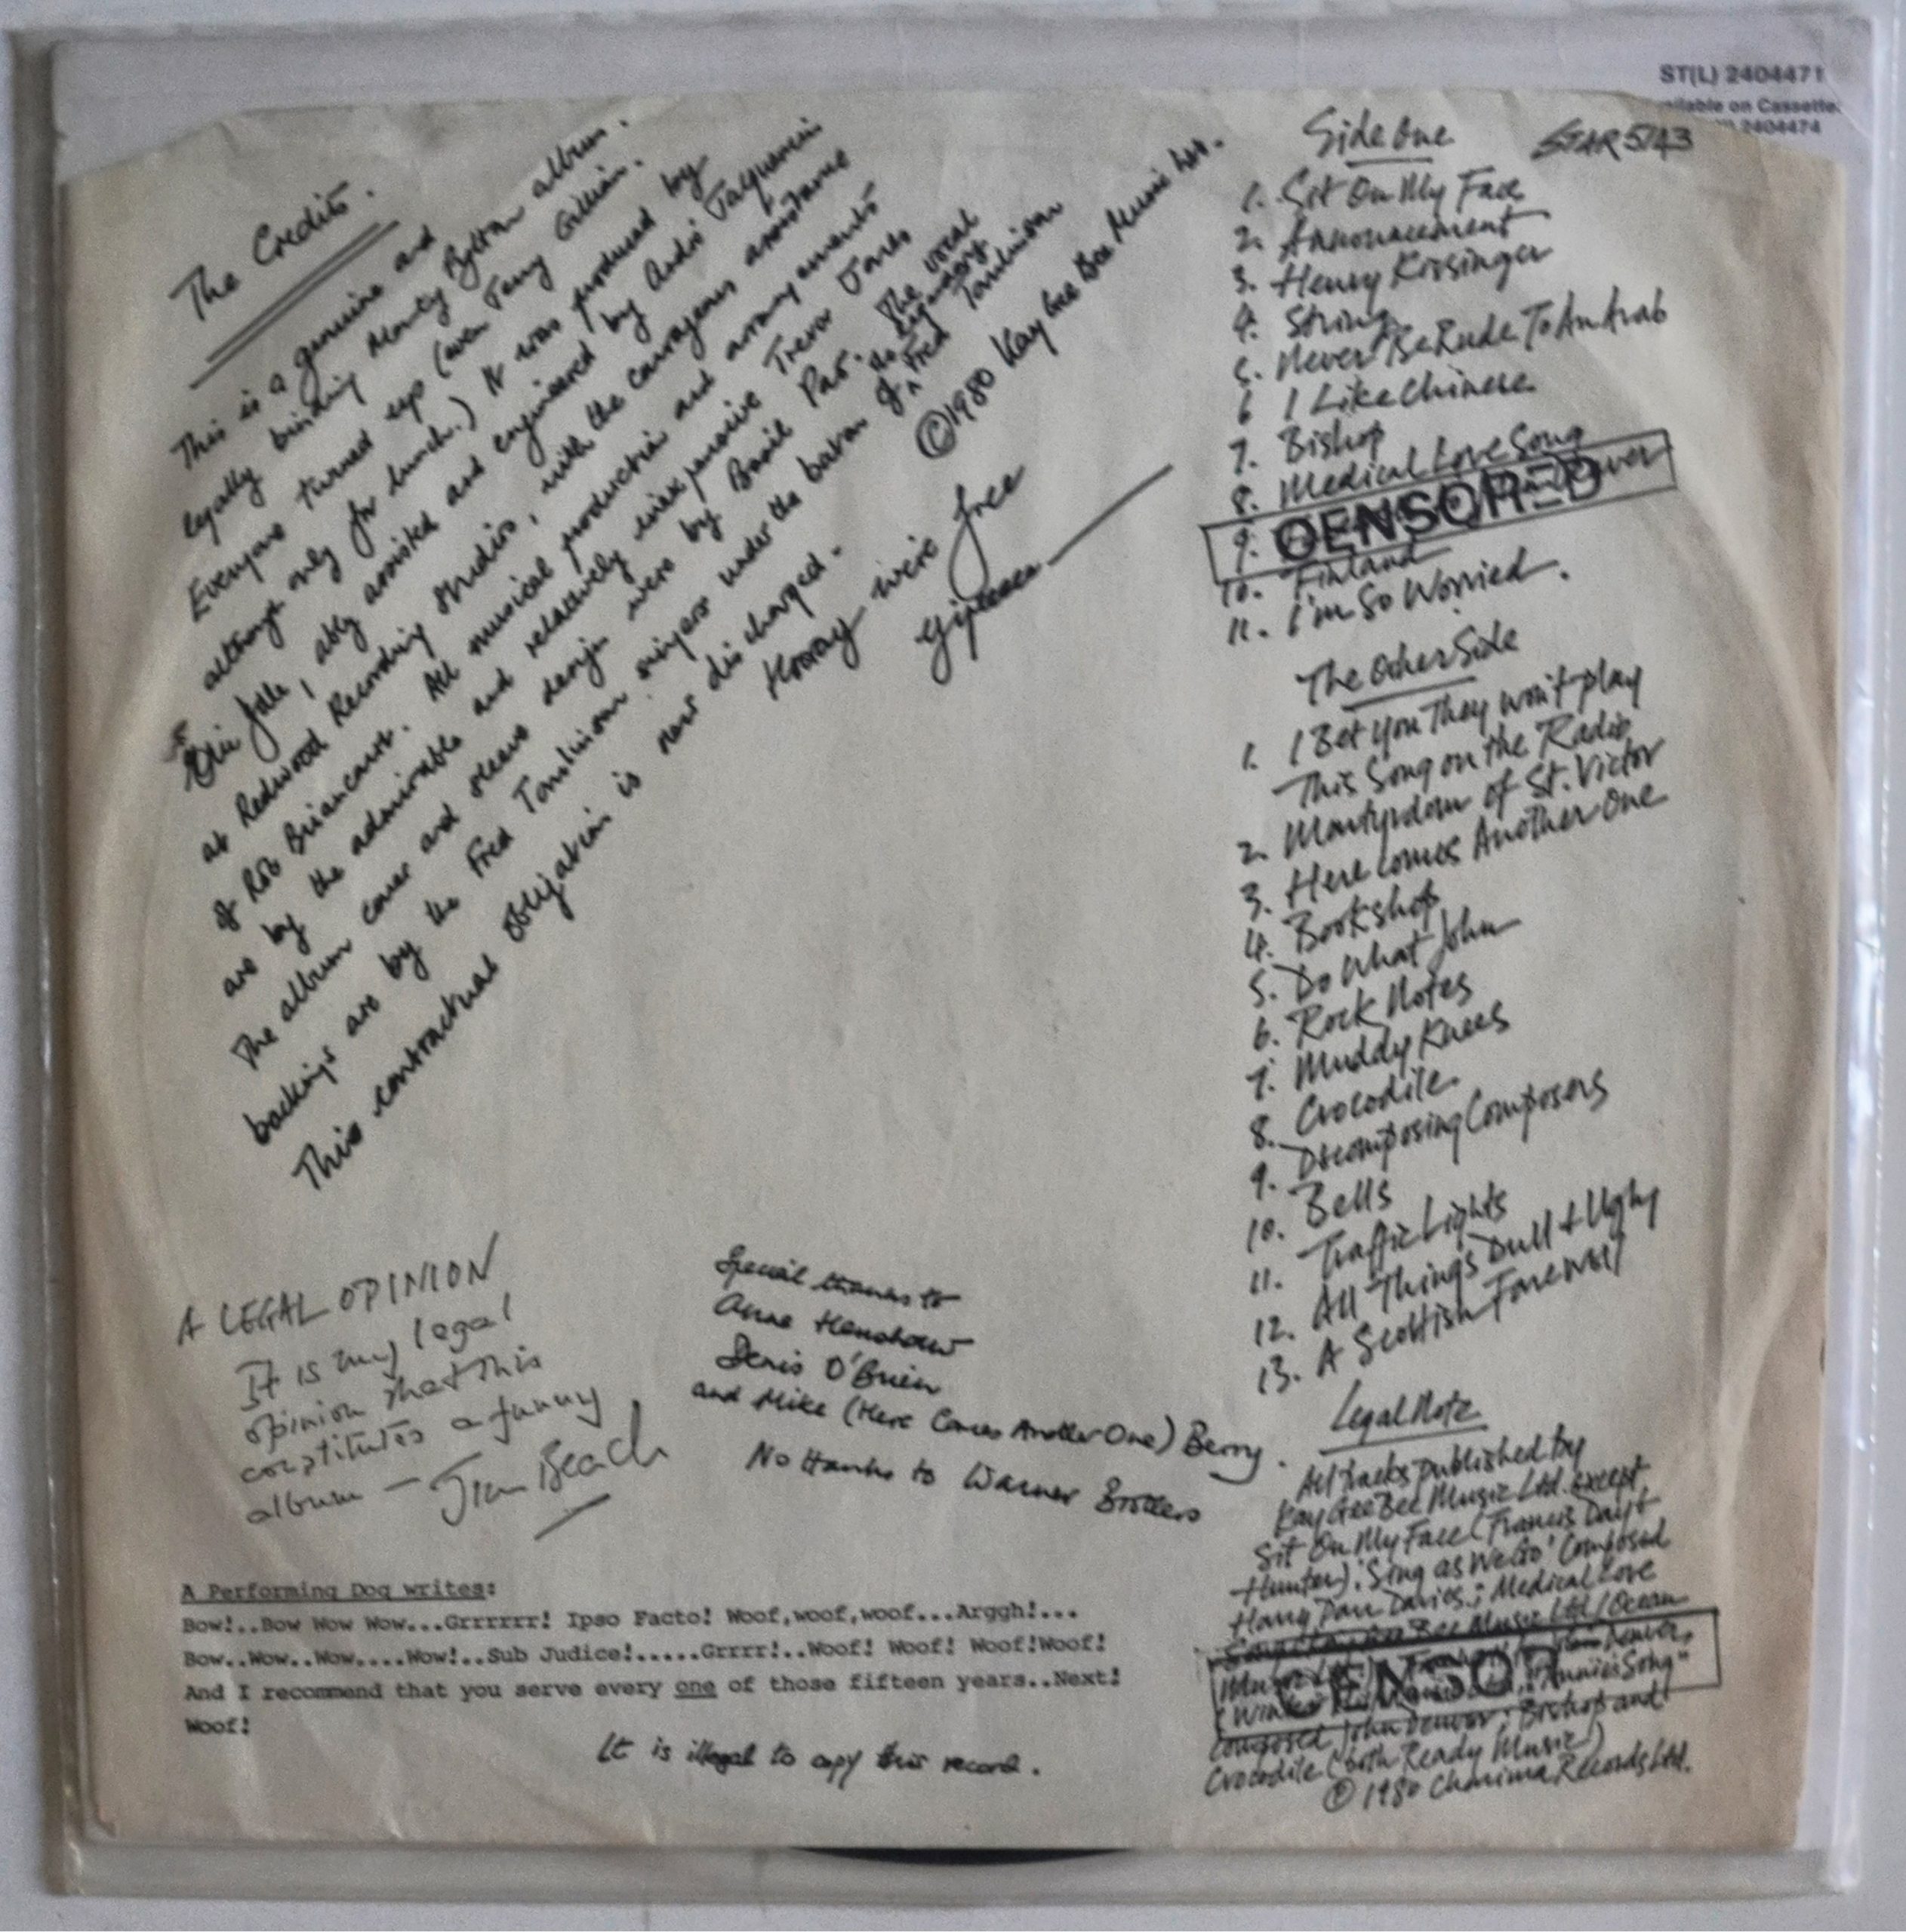 ST(L) 2404471
on Cassette:
2404474
STAR 5143
The Credits.
This is a genuine and
legally binding Monty Python album.
Everyone turned up (even Terry Gilliam.
although only for lunch.) It was produced by
Eric Idle, ably assisted and engineered by André Jacquemin
at Redwood Recording Studios, with the courageous assistance
of Rob Briancourt. All musical production and arrangements
are by the admirable and relatively inexpensive Trevor Jones
The album cover and sleeve design were by Basil Pao. The vocal
backings are by the Fred Tomlinson singers under the baton of the legendary Fred Tomlinson
This contractual obligation is now discharged.
Hooray we're free
©1980 Kay Gee Bee Music Ltd.
Side One
1. Sit On My Face
2. Announcement
3. Henry Kissinger
4. String
5. Never Be Rude To An Arab
6 I Like Chinese
7. Bishop
8. Medical Love Song
9. CENSORED
10. Finland
11. I'm So Worried.
The Other Side
1. I Bet You They won't play
This Song on the Radio
2. Martyrdom of St. Victor
3. Here comes Another One
4. Bookshop
5. Do What John
6. Rock Notes
7. Muddy Knees
8. Crocodile
9. Decomposing Composers
10. Bells
11. Traffic Lights
12. All Things Dull + Ugly
13. A Scottish Farewell
Legal Note
All tracks published by
Kay Gee Bee Music Ltd. except
Sit On My Face (Francis Day &
Hunter). 'Sing as We Go' Composed
Harry Parr Davies.; Medical Love
Song (Kay Gee Bee Music Ltd/Ocean
Music Denver,
CENSOR
"Annie's Song"
composed John Denver; Bishop and
Crocodile (both Ready Music)
℗ 1980 Charisma Records Ltd.
A LEGAL OPINION
It is my legal
opinion that this
constitutes a funny
album — Jim Beach
Special thanks to
Anne Henshaw
Denis O'Brien
and Mike (Here Comes Another One) Berry.
No thanks to Warner Brothers
A Performing Dog writes:
Bow!..Bow Wow Wow...Grrrrrr! Ipso Facto! Woof,woof,woof...Arggh!...
Bow..Wow..Wow....Wow!..Sub Judice!.....Grrrr!..Woof! Woof! Woof!Woof!
And I recommend that you serve every one of those fifteen years..Next!
Woof!
It is illegal to copy this record.